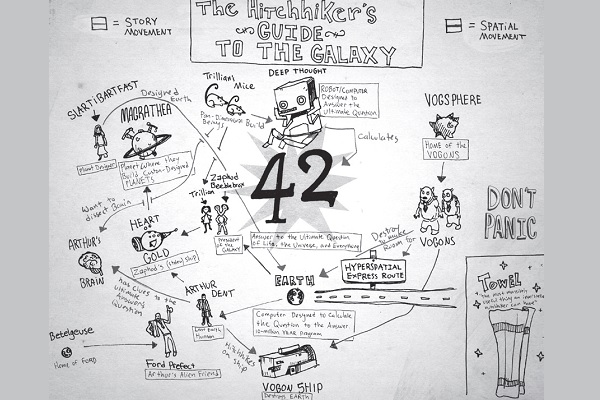 The Hitchhiker's
GUIDE
TO THE GALAXY
= STORY
MOVEMENT
= SPATIAL
MOVEMENT
DEEP THOUGHT
Trillian
Mice
Pan-Dimensional
Beings
Build
ROBOT/COMPUTER
Designed to
Answer the
Ultimate Question
Calculates
VOGSPHERE
HOME OF the
VOGONS
VOGONS
SLARTIBARTFAST
Designed
Earth
Planet Designer
MAGRATHEA
Planet Where they
Build Custom-Designed
PLANETS
Want to
disect Brain
Zaphod
Beeblebrox
Trillian
President
of the
Galaxy
42
Answer to the Ultimate Question
of Life, the Universe, and Everything
Destroy
to make
Room for
HYPERSPATIAL
EXPRESS ROUTE
DON'T
PANIC
HEART
OF
GOLD
Zaphod's (stolen) ship
ARTHUR'S
BRAIN
Has Clues to the
Ultimate
Answer's
Question
ARTHUR
DENT
Last Earth
Human
EARTH
Computer Designed to Calculate
the Question to the Answer
10-million YEAR program
Betelgeuse
Home of FORD
Ford Prefect
Arthur's Alien Friend
Hitchhikes
on ship
VOGON SHIP
Destroys EARTH
TOWEL
The most massively
useful thing an interstellar
hitchhiker can have